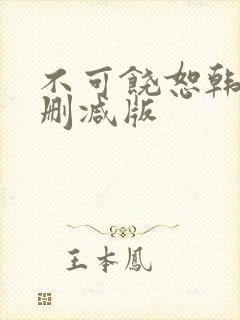 不可饶恕韩
删减版
王本凤